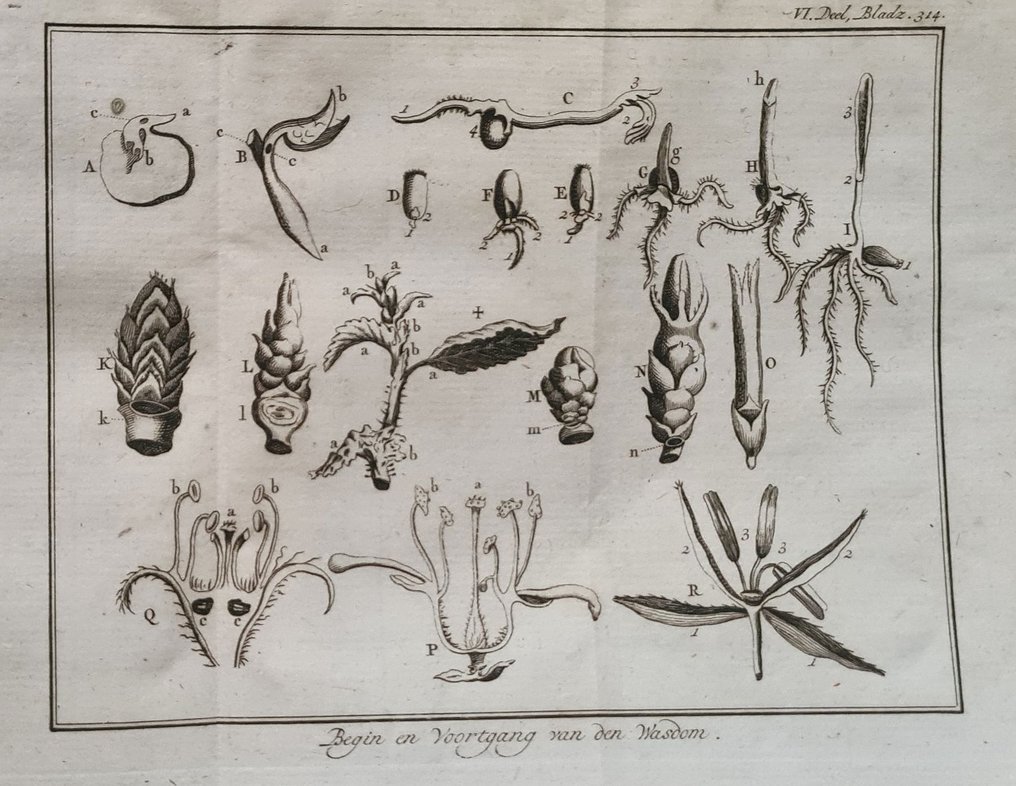 VI. Deel, Bladz. 314.
h
c a b 1 C 3 3
A b c B c 4 2 g
D F E G H
2 2 2 2 2 2
1 1 1 I 1
a
b a
a a +
K L b M N O
a b a
k l m
a b n
b b a b a b 3 3
2 2
Q c c R
P 1 1
Begin en Voortgang van den Wasdom.